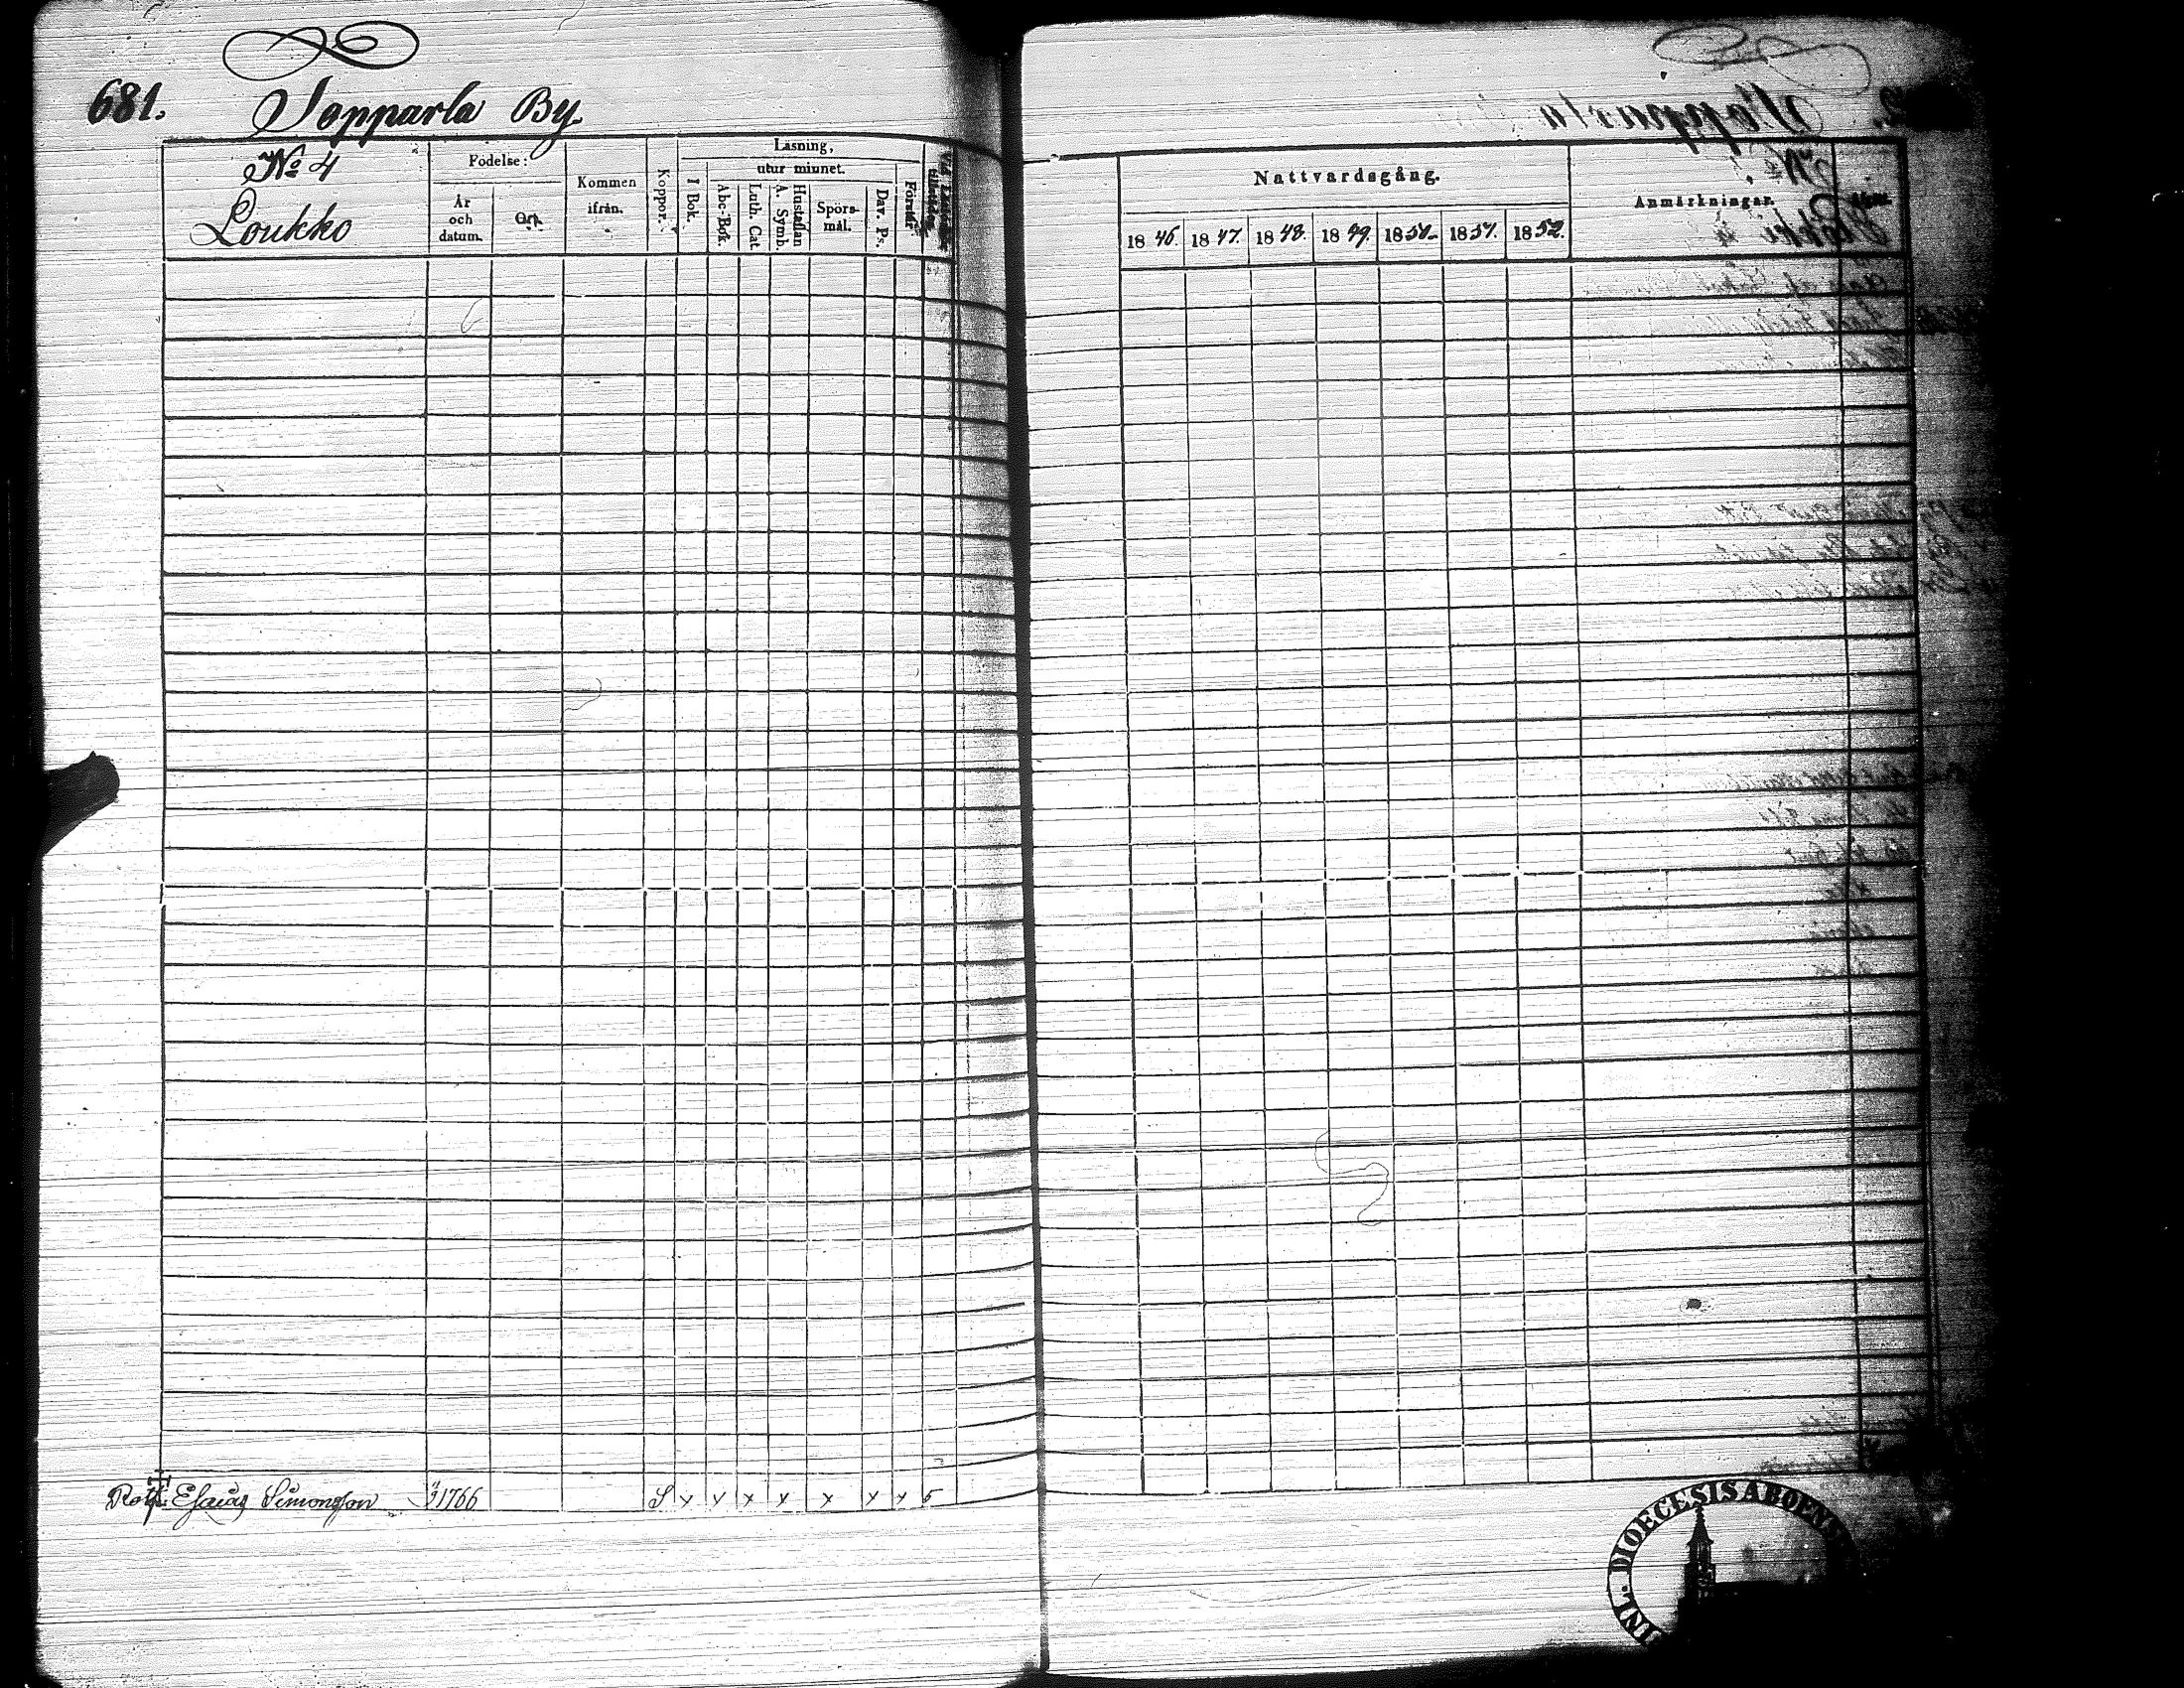 681. Sopparla By.
No 4
Loukko
Födelse:
År
och
datum.
Ort.
Kommen
ifrån.
Koppor.
Läsning,
I Bok.
utur minnet.
Abc-Bok.
Luth. Cat.
Hustaflan
A. Symb.
Spörs-
mål.
Dav. Ps.
Förstår
Nattvardsgång.
1846. 1847. 1848. 1849. 1850. 1851. 1852.
Anmärkningar.
Esaias Simonsson 1766 S x x x x x x x
INL. DIOECESIS ABOENS